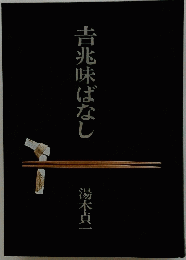 吉兆味ばなし
湯木貞一